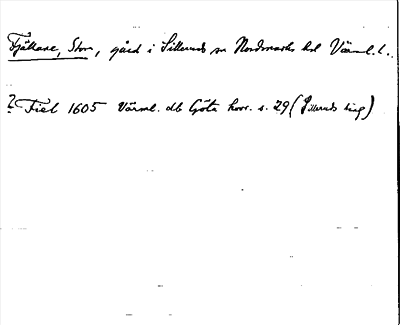 Fjällane, Stora, gård i Silleruds sn Nordmarks hd Värml. l.
? Fiel 1605 Värml. db Göta hovr. s. 29 (Silleruds ting)